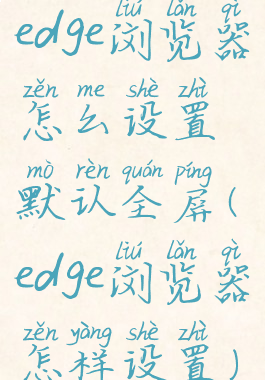 liú lǎn qì
edge浏览器
zěn me shè zhì
怎么设置
mò rèn quán píng
默认全屏(
liú lǎn qì
edge浏览器
zěn yàng shè zhì
怎样设置)